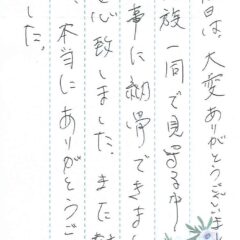 日は、大変ありがとうございまし
族一同で見守る中
事に納骨できまし
心致しました。また
本当にありがとうご
した。